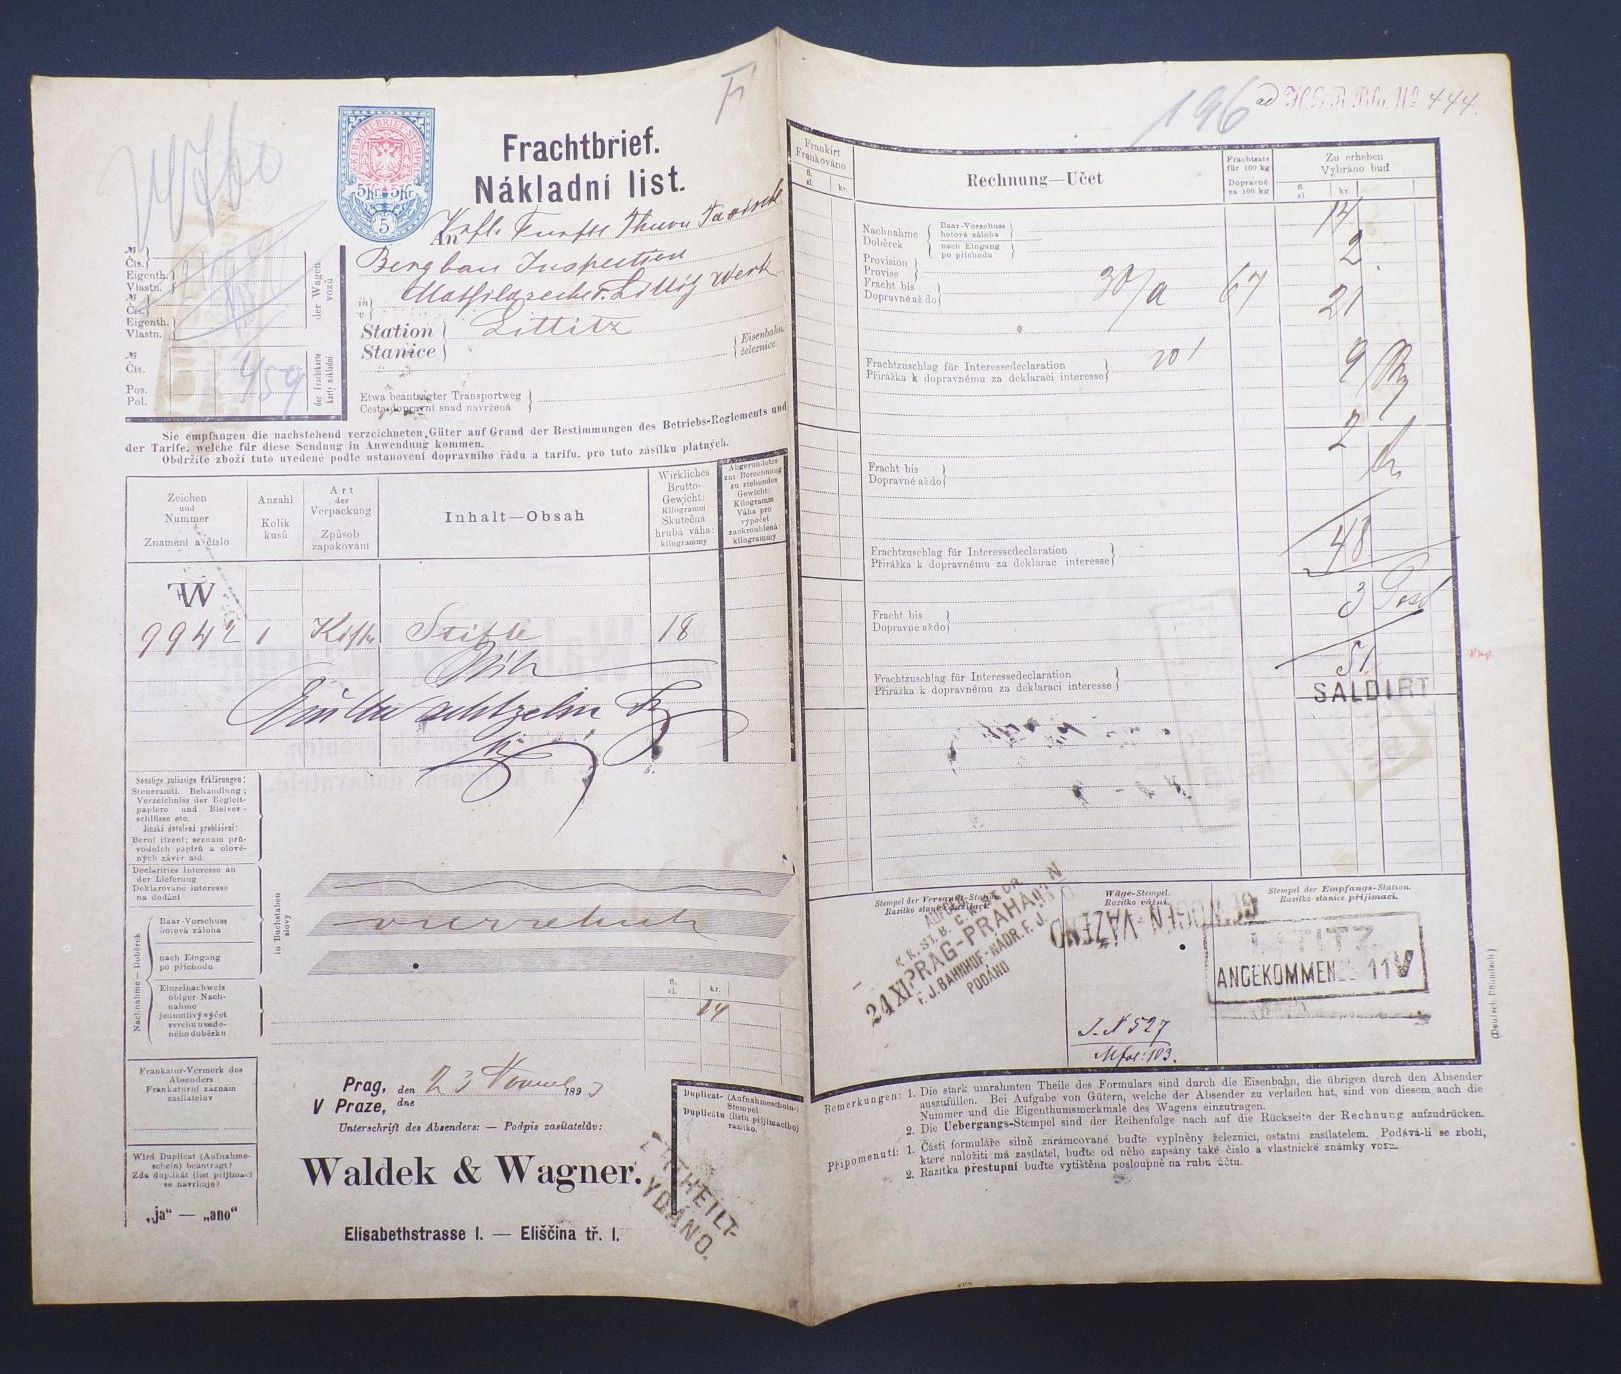 Frachtbrief.
Nákladní list.
5Kr. 5Kr.
5
An
Bergbau Inspection
in
v
Station
Stanice
Littitz
Eisenbahn.
železnice.
Etwa beantragter Transportweg
Cesta dopravní snad navržená
№
Čís.
Eigenth.
Vlastn.
№
Čís.
Eigenth.
Vlastn.
der Wagen
vozů
№
Čís.
Pos.
Pol.
der Frachtkarte
karty nákladní
459
Sie empfangen die nachstehend verzeichneten Güter auf Grund der Bestimmungen des Betriebs-Reglements und
der Tarife, welche für diese Sendung in Anwendung kommen.
Obdržíte zboží tuto uvedené podle ustanovení dopravního řádu a tarifu, pro tuto zásilku platných.
Zeichen
und
Nummer
Znamení a číslo
Anzahl
Kolik
kusů
Art
der
Verpackung
Způsob
zapakování
Inhalt—Obsah
Wirkliches
Brutto-
Gewicht:
Kilogramm
Skutečná
hrubá váha:
kilogrammy
Abgerundetes
zur Berechnung
zu ziehendes
Gewicht:
Kilogramm
Váha pro
výpočet
zaokrouhlená:
kilogrammy
9942 1 Stifte 18
achtzehn
Sonstige zulässige Erklärungen:
Steueramtl. Behandlung;
Verzeichniss der Begleit-
papiere und Bleiver-
schlüsse etc.
Jinaká dovolená prohlášení:
Berní řízení; seznam prů-
vodních papírů a olově-
ných závěr atd.
Declarirtes Interesse an
der Lieferung
Deklarované interesse
na dodání
Nachnahme — Doběrek
Baar-Vorschuss
hotová záloha
nach Eingang
po příchodu
Einzelnachweis
obiger Nach-
nahme
jednotlivý výčet
svrchu uvede-
ného doběrku
in Buchstaben
slovy
vierzehn
fl.
zl.
kr.
14
Frankatur-Vermerk des
Absenders
Frankaturní záznam
zasílatelův
Wird Duplicat (Aufnahme-
schein) beantragt?
Zda duplikát (list přijímací)
se navrhuje?
„ja“ — „ano“
Prag, den
V Praze, dne
23 1893
Unterschrift des Absenders: — Podpis zasílatelův:
Waldek & Wagner.
Elisabethstrasse I. — Eliščina tř. I.
Duplicat- (Aufnahmeschein-)
Stempel
Duplicátu (listu přijímacího)
razítko.
196
444.
Frankirt
Frankováno
fl.
zl.
kr.
Rechnung—Účet
Frachtsatz
für 100 kg
Dopravné
za 100 kg
Zu erheben
Vybráno bud
fl.
zl.
kr.
Nachnahme
Doběrek
Baar-Vorschuss
hotová záloha
nach Eingang
po příchodu
14
Provision
Provise
2
Fracht bis
Dopravné až do
67 21
Frachtzuschlag für Interessedeclaration
Přirážka k dopravnému za deklaraci interesse
9
2
Fracht bis
Dopravné až do
Frachtzuschlag für Interessedeclaration
Přirážka k dopravnému za deklarac interesse
48
3
Fracht bis
Dopravné až do
51
Frachtzuschlag für Interessedeclaration
Přirážka k dopravnému za deklaraci interesse
SALDIRT
Stempel der Versandt-Station.
Razítko stanice zasílací.
Wäge-Stempel.
Razítko vážní.
Stempel der Empfangs-Station.
Razítko stanice přijímací.
PRAG-PRAHA
24 XI
F. J. BAHNHOF-NÁDR. F. J.
PODÁNO
GEWOGEN-VÁŽENO
LITITZ
ANGEKOMMEN 11 V
J. N 527
Bemerkungen: 1. Die stark umrahmten Theile des Formulars sind durch die Eisenbahn, die übrigen durch den Absender
auszufüllen. Bei Aufgabe von Gütern, welche der Absender zu verladen hat, sind von diesem auch die
Nummer und die Eigenthumsmerkmale des Wagens einzutragen.
2. Die Uebergangs-Stempel sind der Reihenfolge nach auf die Rückseite der Rechnung aufzudrücken.
Připomenutí: 1. Části formuláře silně zarámcované buďte vyplněny železnicí, ostatní zasílatelem. Podává-li se zboží,
které naložiti má zasílatel, buďte od něho zapsány také číslo a vlastnické známky vozu.
2. Razítka přestupní buďte vytištěna posloupně na rubu účtu.
(Deutsch Böhmisch)